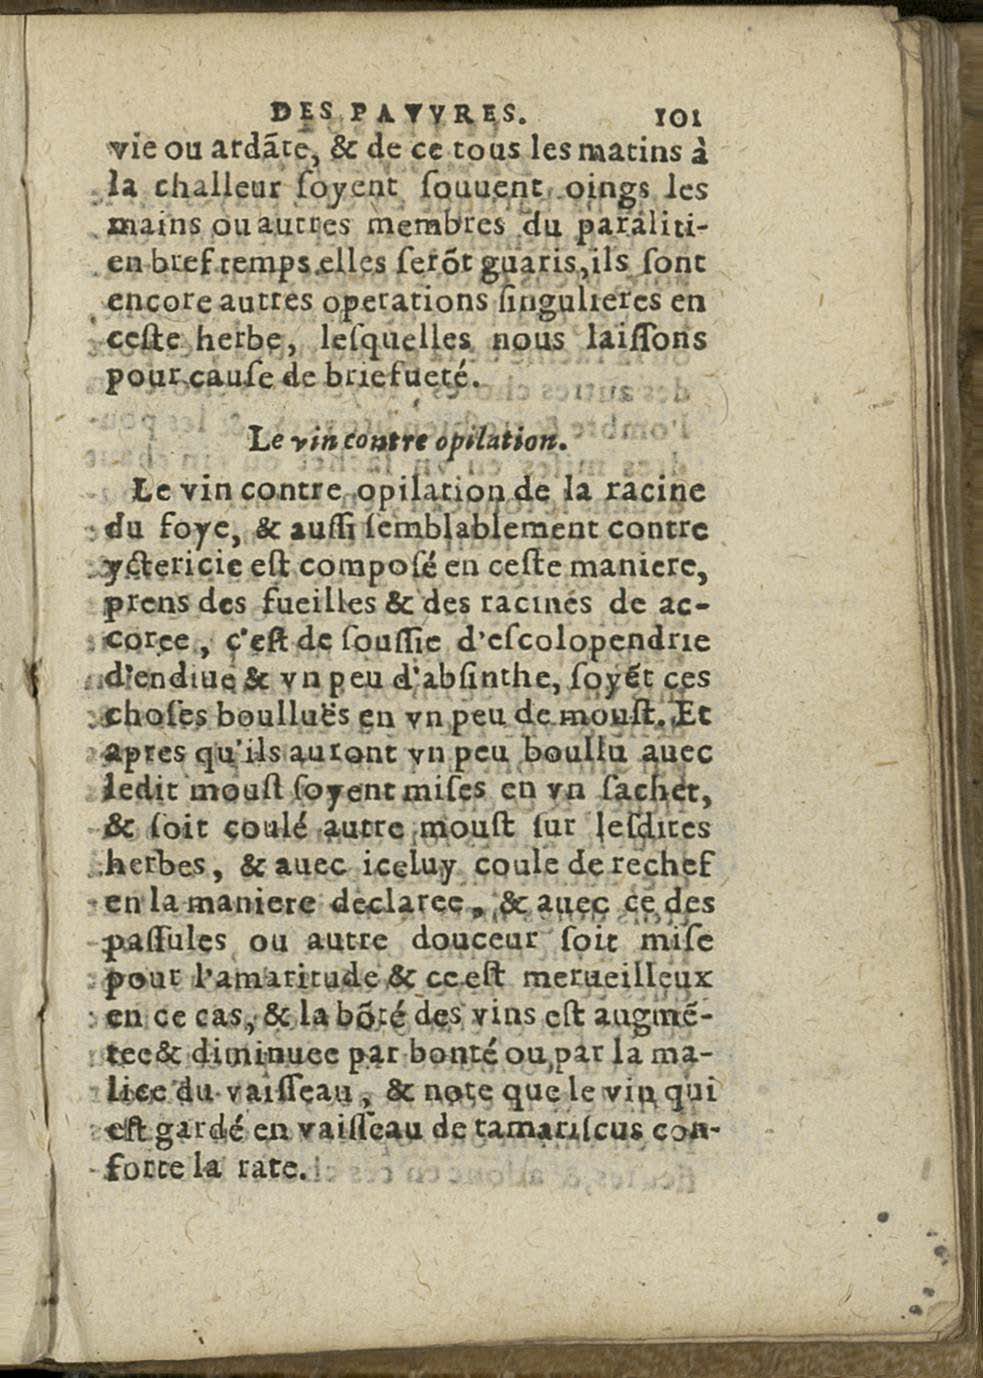 DES PATVRES. 101
vie ou ardãte, & de ce tous les matins à
la challeur ſoyent ſouuent oings les
mains ou autres membres du paraliti-
en bref temps elles ſerõt guaris, ils ſont
encore autres operations ſingulieres en
ceſte herbe, leſquelles nous laiſſons
pour cauſe de briefueté.
Le vin contre opilation.
Le vin contre opilation de la racine
du foye, & auſſi ſemblablement contre
yctericie eſt compoſé en ceſte maniere,
prens des fueilles & des racines de ac-
coree, c'eſt de ſouſſie d'eſcolopendrie
d'endiue & vn peu d'abſinthe, ſoyẽt ces
choſes boulluës en vn peu de mouſt. Et
apres qu'ils auront vn peu boullu auec
ledit mouſt ſoyent miſes en vn ſachet,
& ſoit coulé autre mouſt ſur leſdites
herbes, & auec iceluy coule de rechef
en la maniere declaree, & auec ce des
paſſules ou autre douceur ſoit miſe
pour l'amaritude & ce eſt merueilleux
en ce cas, & la bõté des vins eſt augmẽ-
tee & diminuee par bonté ou par la ma-
lice du vaiſſeau, & note que le vin qui
eſt gardé en vaiſſeau de tamariſcus con-
forte la rate.